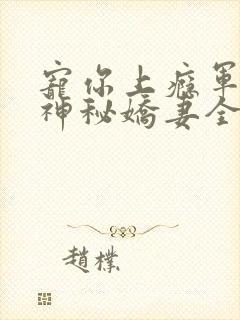 寵你上癮軍
神秘嬌妻全
趙樸